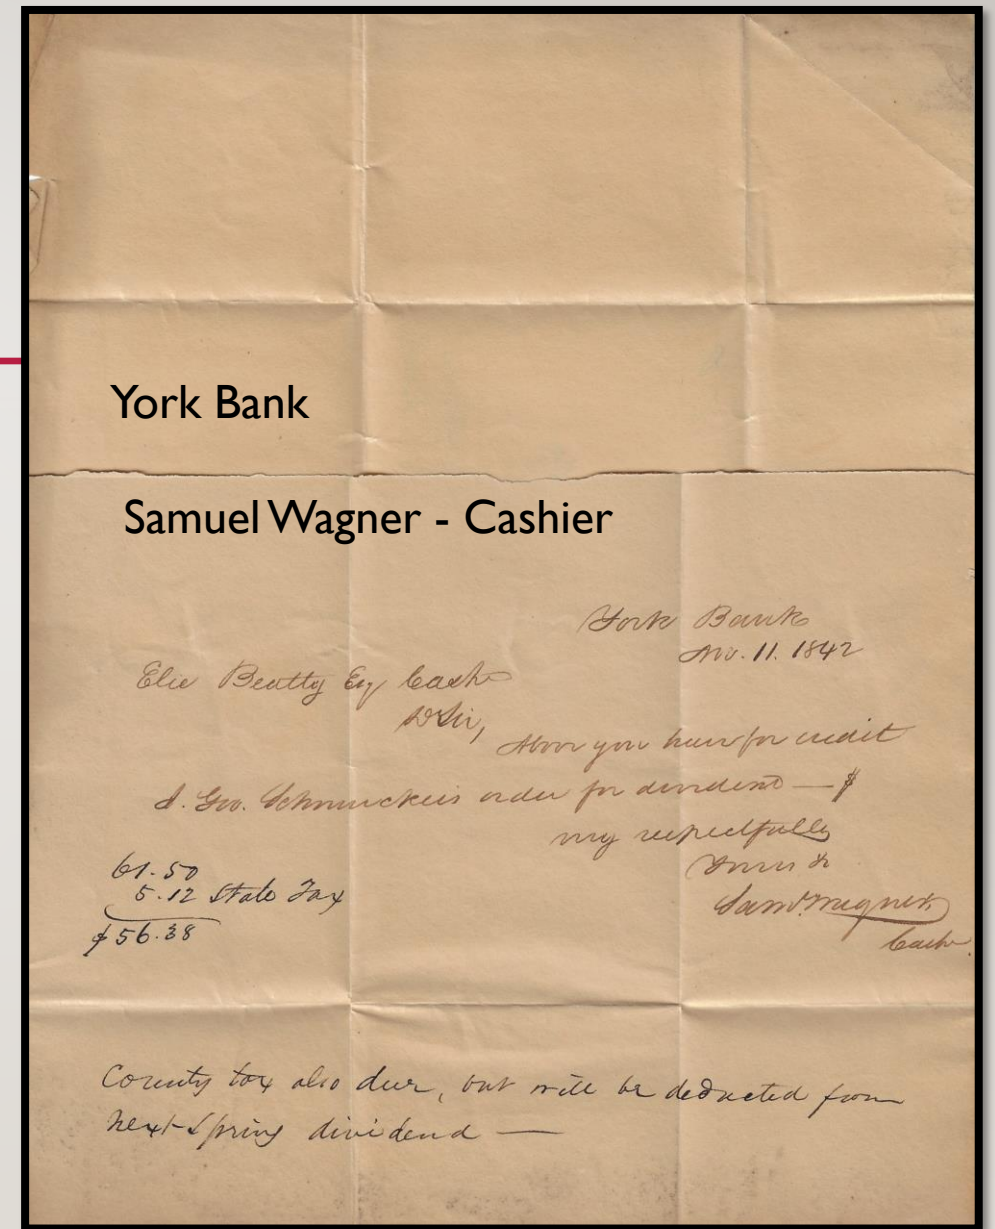 York Bank
Samuel Wagner - Cashier
York Bank
Nov. 11. 1842
Elie Beatty Esq Cashr
D Sir,
Above you have for credit
S. Geo. Schmucker's order for dividend — $
very respectfully
Yours &
Saml Wagner
Cashr.
61.50
5.12 State Tax
$56.38
County tax also due, but will be deducted from
next Spring dividend —